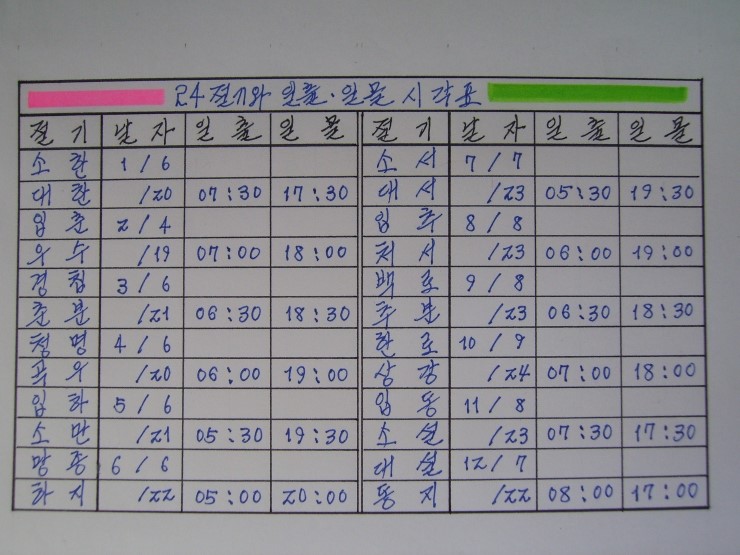 24절기와 일출·일몰 시각표
절기 날자 일출 일몰 절기 날자 일출 일몰
소한 1/6 소서 7/7
대한 /20 07:30 17:30 대서 /23 05:30 19:30
입춘 2/4 입추 8/8
우수 /19 07:00 18:00 처서 /23 06:00 19:00
경칩 3/6 백로 9/8
춘분 /21 06:30 18:30 추분 /23 06:30 18:30
청명 4/6 한로 10/9
곡우 /20 06:00 19:00 상강 /24 07:00 18:00
입하 5/6 입동 11/8
소만 /21 05:30 19:30 소설 /23 07:30 17:30
망종 6/6 대설 12/7
하지 /22 05:00 20:00 동지 /22 08:00 17:00